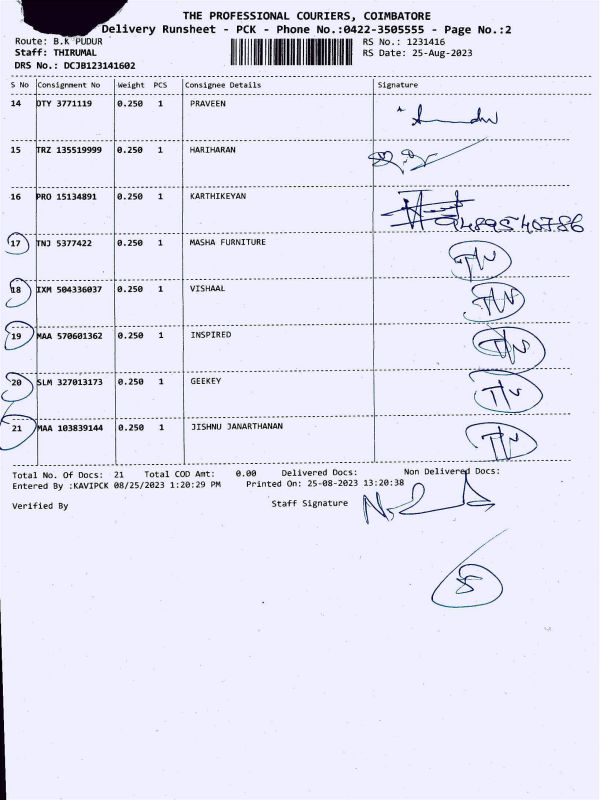 THE PROFESSIONAL COURIERS, COIMBATORE
Delivery Runsheet - PCK - Phone No.:0422-3505555 - Page No.:2
Route: B.K PUDUR RS No.: 1231416
Staff: THIRUMAL RS Date: 25-Aug-2023
DRS No.: DCJB123141602
S No Consignment No Weight PCS Consignee Details Signature
14 OTY 3771119 0.250 1 PRAVEEN
15 TRZ 135519999 0.250 1 HARIHARAN
16 PRO 15134891 0.250 1 KARTHIKEYAN
9489540786
17 TNJ 5377422 0.250 1 MASHA FURNITURE
18 IXM 504336037 0.250 1 VISHAAL
19 MAA 570601362 0.250 1 INSPIRED
20 SLM 327013173 0.250 1 GEEKEY
21 MAA 103839144 0.250 1 JISHNU JANARTHANAN
Total No. Of Docs: 21 Total COD Amt: 0.00 Delivered Docs: Non Delivered Docs:
Entered By :KAVIPCK 08/25/2023 1:20:29 PM Printed On: 25-08-2023 13:20:38
Verified By Staff Signature